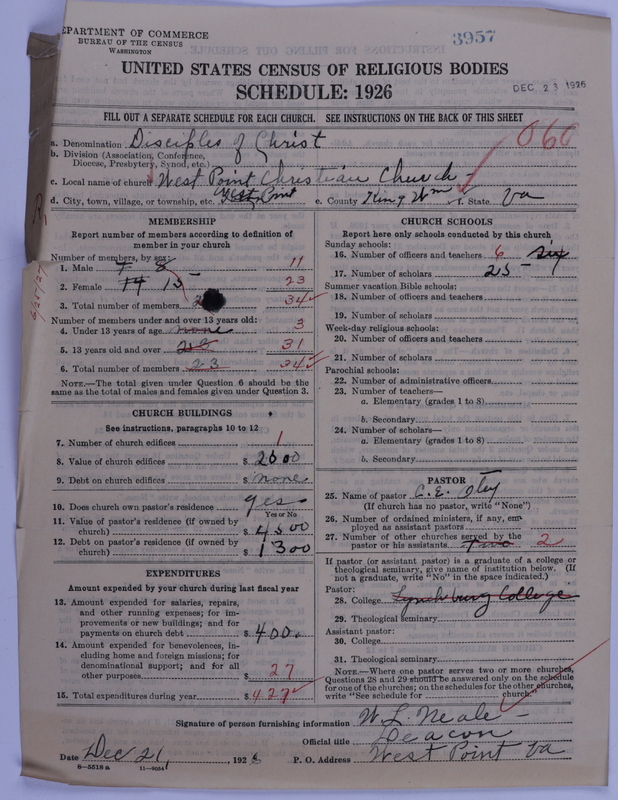 DEPARTMENT OF COMMERCE
BUREAU OF THE CENSUS
WASHINGTON
3957
UNITED STATES CENSUS OF RELIGIOUS BODIES
SCHEDULE: 1926
DEC 23 1926
FILL OUT A SEPARATE SCHEDULE FOR EACH CHURCH. SEE INSTRUCTIONS ON THE BACK OF THIS SHEET
060
a. Denomination Disciples of Christ
b. Division (Association, Conference, Diocese, Presbytery, Synod, etc.)
c. Local name of church West Point Christian Church
d. City, town, village, or township, etc. West Point e. County King Wm f. State Va
MEMBERSHIP
Report number of members according to definition of member in your church
Number of members, by sex:
1. Male 7 8 11
2. Female 14 15 23
3. Total number of members 2 34
Number of members under and over 13 years old:
4. Under 13 years of age none 3
5. 13 years old and over 31
6. Total number of members 23 34
NOTE.—The total given under Question 6 should be the same as the total of males and females given under Question 3.
CHURCH BUILDINGS
See instructions, paragraphs 10 to 12
7. Number of church edifices 1
8. Value of church edifices $ 2000
9. Debt on church edifices $ none
10. Does church own pastor's residence yes
Yes or No
11. Value of pastor's residence (if owned by church) $ 4500
12. Debt on pastor's residence (if owned by church) $ 1300
EXPENDITURES
Amount expended by your church during last fiscal year
13. Amount expended for salaries, repairs, and other running expenses; for improvements or new buildings; and for payments on church debt $ 400.
14. Amount expended for benevolences, including home and foreign missions; for denominational support; and for all other purposes $ 27
15. Total expenditures during year $ 427
CHURCH SCHOOLS
Report here only schools conducted by this church
Sunday schools:
16. Number of officers and teachers 6 six
17. Number of scholars 25
Summer vacation Bible schools:
18. Number of officers and teachers
19. Number of scholars
Week-day religious schools:
20. Number of officers and teachers
21. Number of scholars
Parochial schools:
22. Number of administrative officers
23. Number of teachers—
a. Elementary (grades 1 to 8)
b. Secondary
24. Number of scholars—
a. Elementary (grades 1 to 8)
b. Secondary
PASTOR
25. Name of pastor C. E. Otey
(If church has no pastor, write "None")
26. Number of ordained ministers, if any, employed as assistant pastors
27. Number of other churches served by the pastor or his assistants Two 2
If pastor (or assistant pastor) is a graduate of a college or theological seminary, give name of institution below. (If not a graduate, write "No" in the space indicated.)
Pastor:
28. College Lynchburg College
29. Theological seminary
Assistant pastor:
30. College
31. Theological seminary
NOTE.—Where one pastor serves two or more churches, Questions 28 and 29 should be answered only on the schedule for one of the churches; on the schedules for the other churches, write "See schedule for church."
Signature of person furnishing information W. L. Neale
Official title Deacon
Date Dec 21, 1926 P. O. Address West Point Va
6—5518a 11—9054